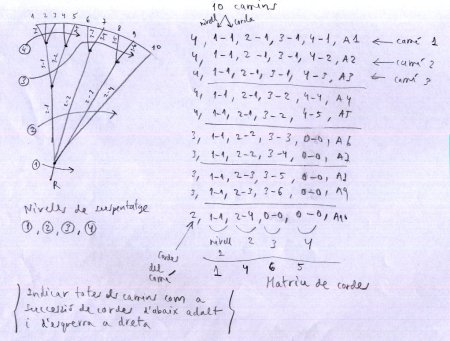 10 camins
nivell corda
4, 1-1, 2-1, 3-1, 4-1, A1 ← camí 1
4, 1-1, 2-1, 3-1, 4-2, A2 ← camí 2
4, 1-1, 2-1, 3-1, 4-3, A3 ← camí 3
4, 1-1, 2-1, 3-2, 4-4, A4
4, 1-1, 2-1, 3-2, 4-5, A5
3, 1-1, 2-2, 3-3, 0-0, A6
3, 1-1, 2-2, 3-4, 0-0, A7
3, 1-1, 2-3, 3-5, 0-0, A8
3, 1-1, 2-3, 3-6, 0-0, A9
2, 1-1, 2-4, 0-0, 0-0, A10
nivell 2 3 4
1
1 4 6 5
Cordes
del
camí
Matriu de cordes
1 2 3 4 5 6 7 8 9 10
4
3
2
1
2-1
2-2
2-3
2-4
R
Nivells de suspentatge
1, 2, 3, 4
Indicar totes els camins com a
successió de cordes d'abaix a dalt
i d'esquerra a dreta